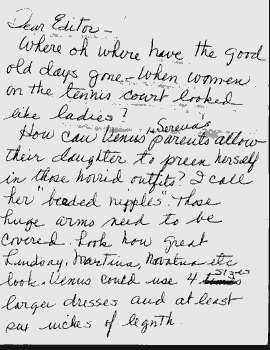 Dear Editor -
Where oh where have the good
old days gone - When women
on the tennis court looked
like ladies?
How can Venus & Serena's parents allow
their daughter to preen herself
in those horrid outfits? I call
her "beaded nipples". Those
huge arms need to be
covered. Look how great
Lindsay, Martina, Novatna etc
look. Venus could use 4 sizes
larger dresses and at least
six inches of length.